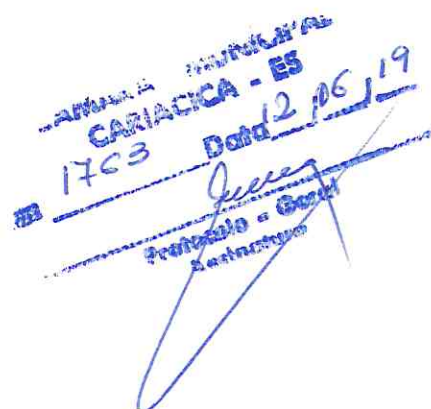 CAMARA MUNICIPAL
CARIACICA - ES
Nº 1763 Data 12/06/19
Protocolo - Geral
Assinatura